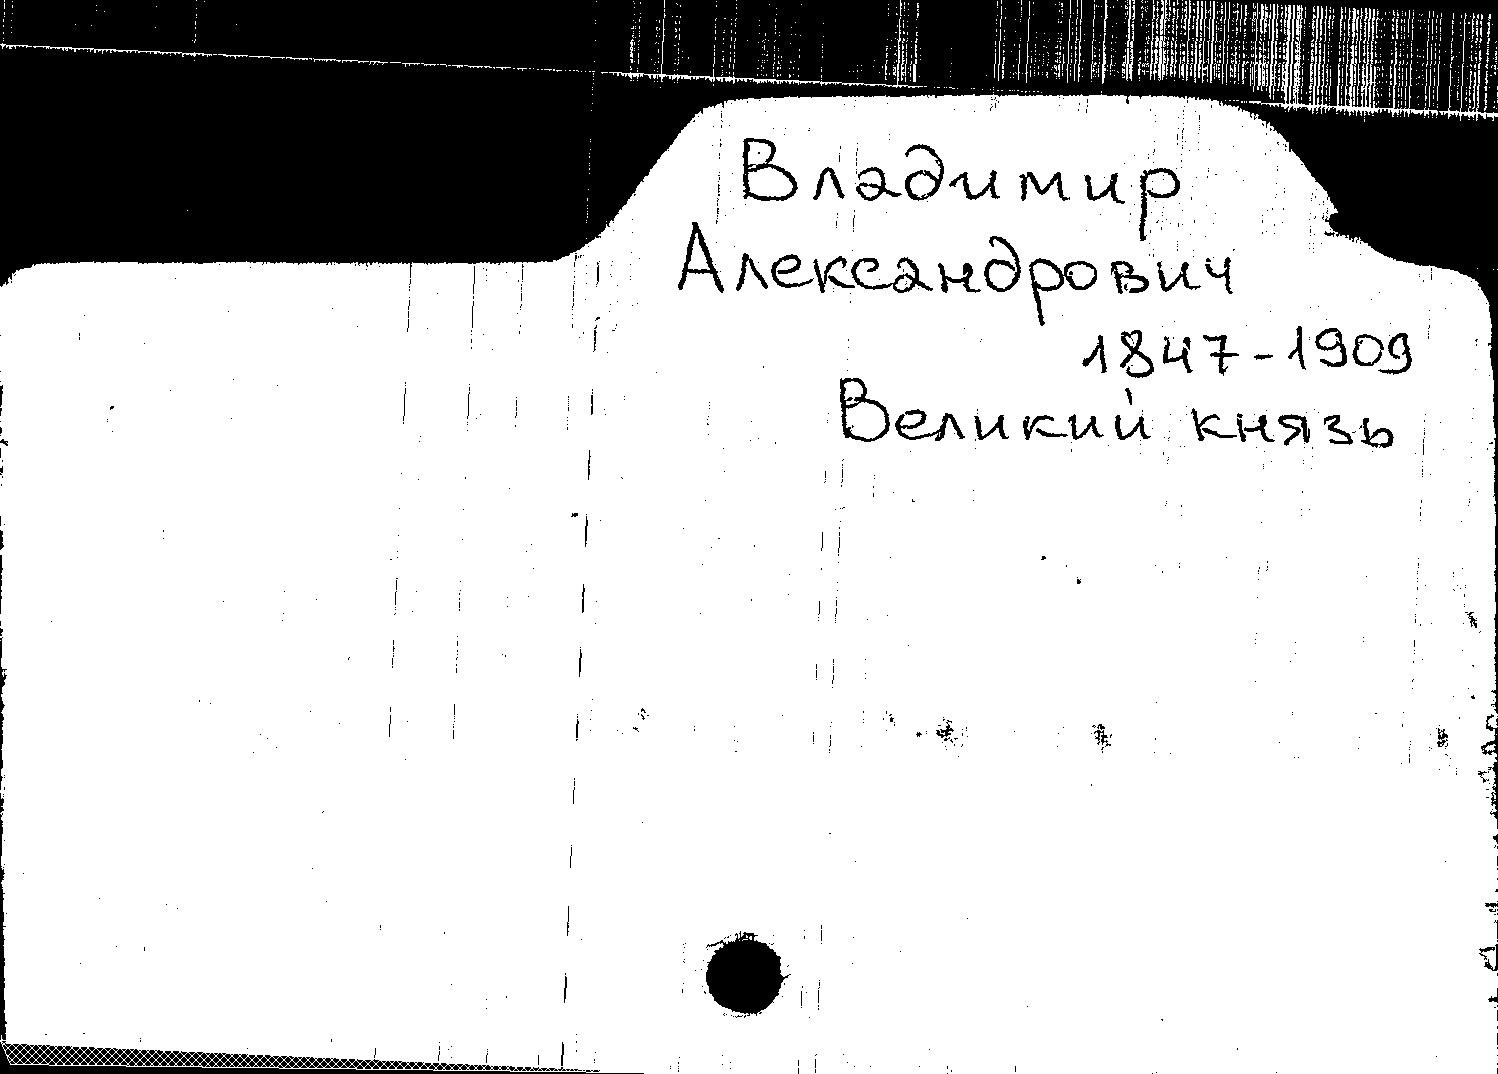 Владимир
Александрович
1847-1909
Великий князь